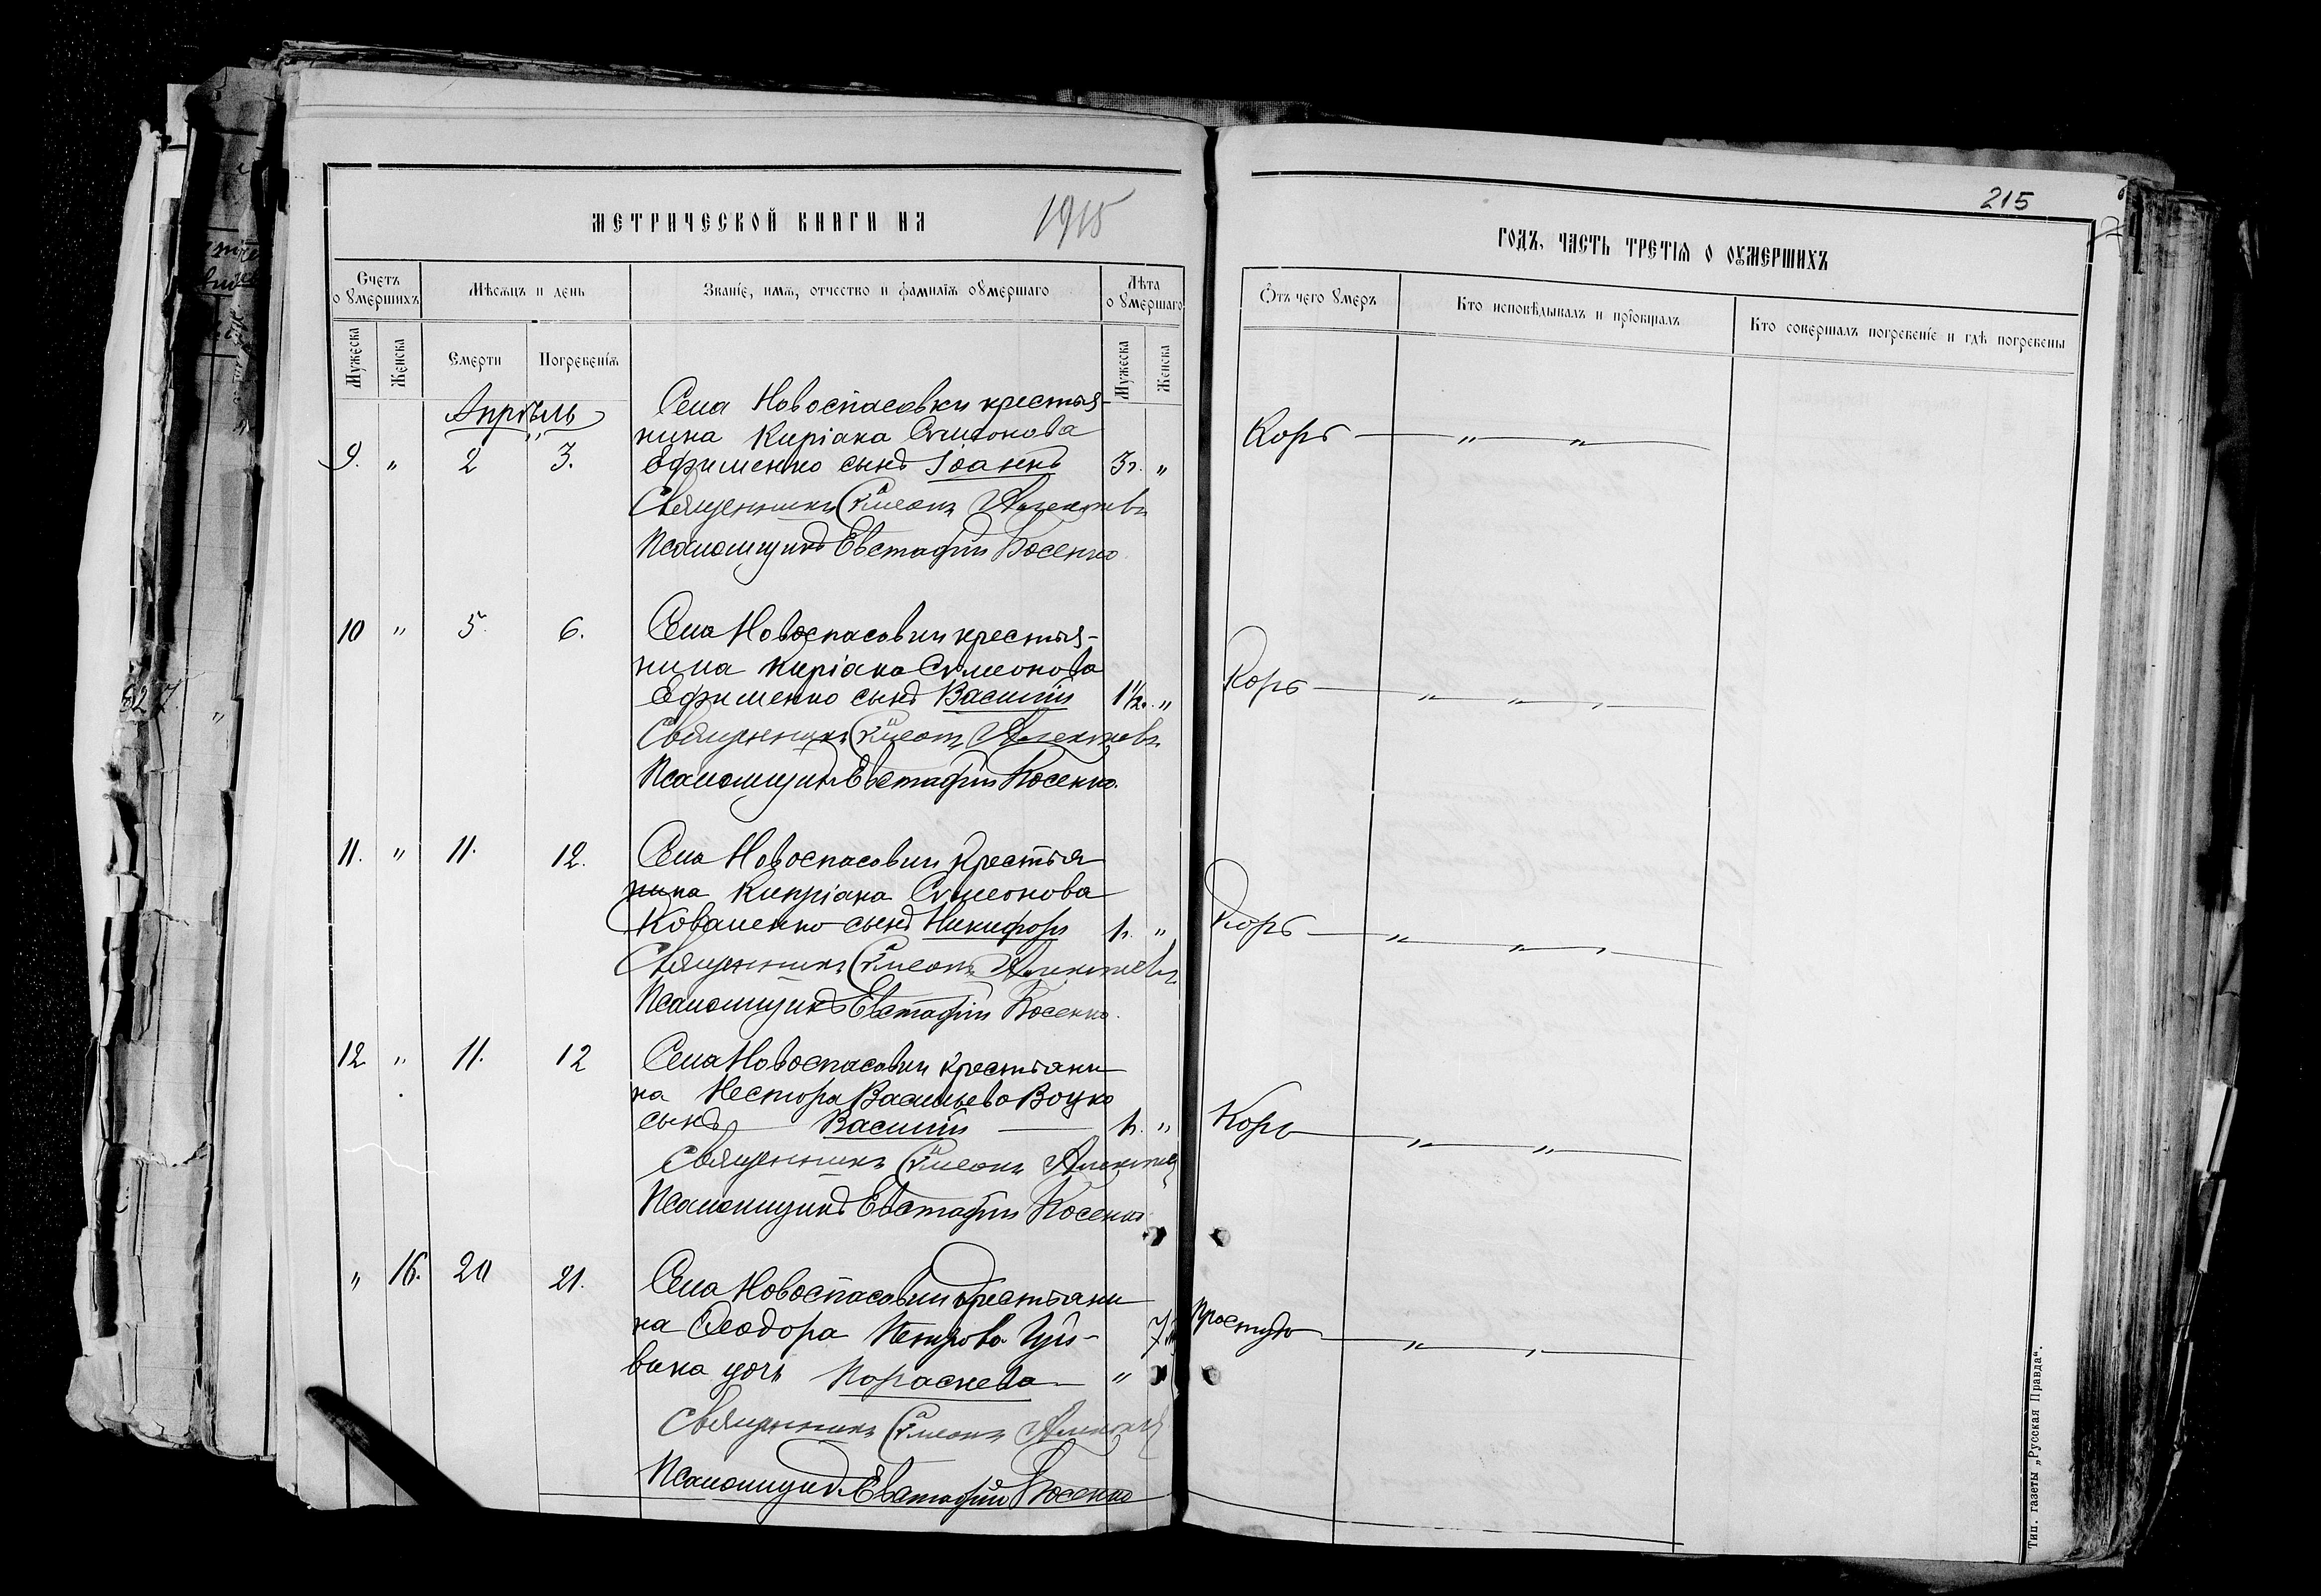 МЕТРИЧЕСКОЙ КНИГИ НА 1915
215
ГОДЪ, ЧАСТЬ ТРЕТІЯ О ОУМЕРШИХЪ
Счетъ о умершихъ
Мѣсяцъ и день
Званіе, имя, отчество и фамилія оумершаго
Лѣта оумершаго
Отъ чего умеръ
Кто исповѣдывалъ и пріобщалъ
Кто совершалъ погребеніе и гдѣ погребены
Мужеска
Женска
Смерти
Погребенія
Мужеска
Женска
Апрѣль
Села Новоспасовки крестья-
нина Киріака Симеонова
9. " 2 3. Ефименко сынъ Іоаннъ 3г. "
Корь — " — " —
Священникъ Симеонъ Алексѣевъ
Псаломщикъ Евстафій Косенко.
10 " 5. 6. Села Новоспасовки крестья-
нина Киріака Симеонова
Ефименко сынъ Василій 1½. "
Корь — " — " — " —
Священникъ Симеонъ Алексѣевъ
Псаломщикъ Евстафій Косенко.
11. " 11. 12. Села Новоспасовки крестья
нина Кипріана Симеонова
Коваленко сынъ Никифоръ 1г. "
Корь — " — " — " —
Священникъ Симеонъ Алексѣевъ
Псаломщикъ Евстафій Косенко.
12 " 11. 12 Села Новоспасовки крестьяни
на Нестора Васильева Воцко
сынъ — Василій — 1г. "
Корь — " — " —
Священникъ Симеонъ Алексѣев
Псаломщикъ Евстафій Косенко
" 16. 20 21. Села Новоспасовки крестьяни
на Феодора Петрова
дочь Параскева — "
Простуда — " — " —
Священникъ Симеонъ
Псаломщикъ Евстафій Косенко
Тип. газеты „Русская Правда“.